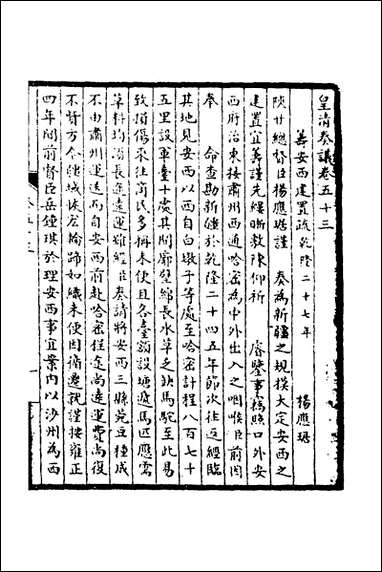 皇清奏議卷五十三
善安西建置疏乾隆二十七年 楊應琚
陝甘總督臣楊應琚謹 奏為新疆之規模大定安西之
建置宜善謹先縷晰敷陳仰祈 睿鑒事竊照口外安
西府治東接肅州西通哈密為中外出入之咽喉臣前因
奉 命查勘新疆於乾隆二十四五年節次往返經臨
其地見安西以西自白墩子等處至哈密計程八百七十
五里設軍臺十處其間廓壁綿長水草乏缺馬駝至此易
致損傷來往商民多稱未便且各臺額設塘遞馬匹應需
草料均須長途遠運雖經臣奏請將安西三縣莞豆種成
不由肅州運送而自安西前赴哈密程途尚遠運費尚復
不貲方今疆域恢宏輪蹄如織未便因循遷就謹按雍正
四年間前督臣岳鍾琪於理安西事宜案內以沙州為西